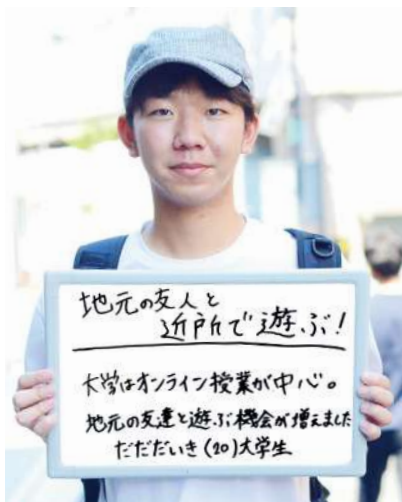 地元の友人と
近所で遊ぶ！
大学はオンライン授業が中心。
地元の友達と遊ぶ機会が増えました
だだだいき(20)大学生